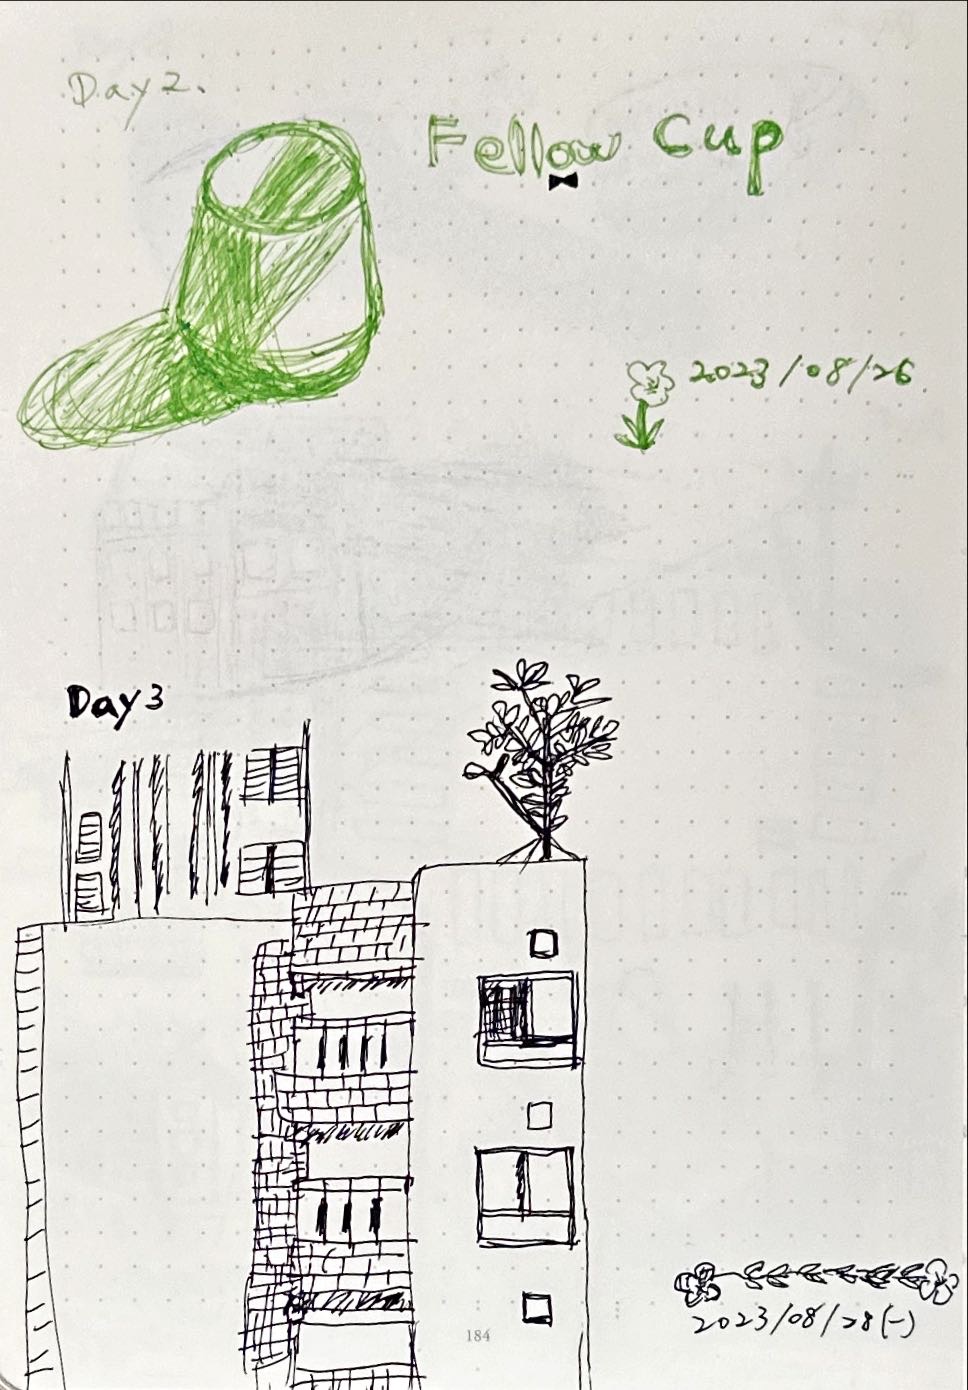 Day 2.
Fellow Cup
2023/08/26
Day 3
2023/08/28(一)
184